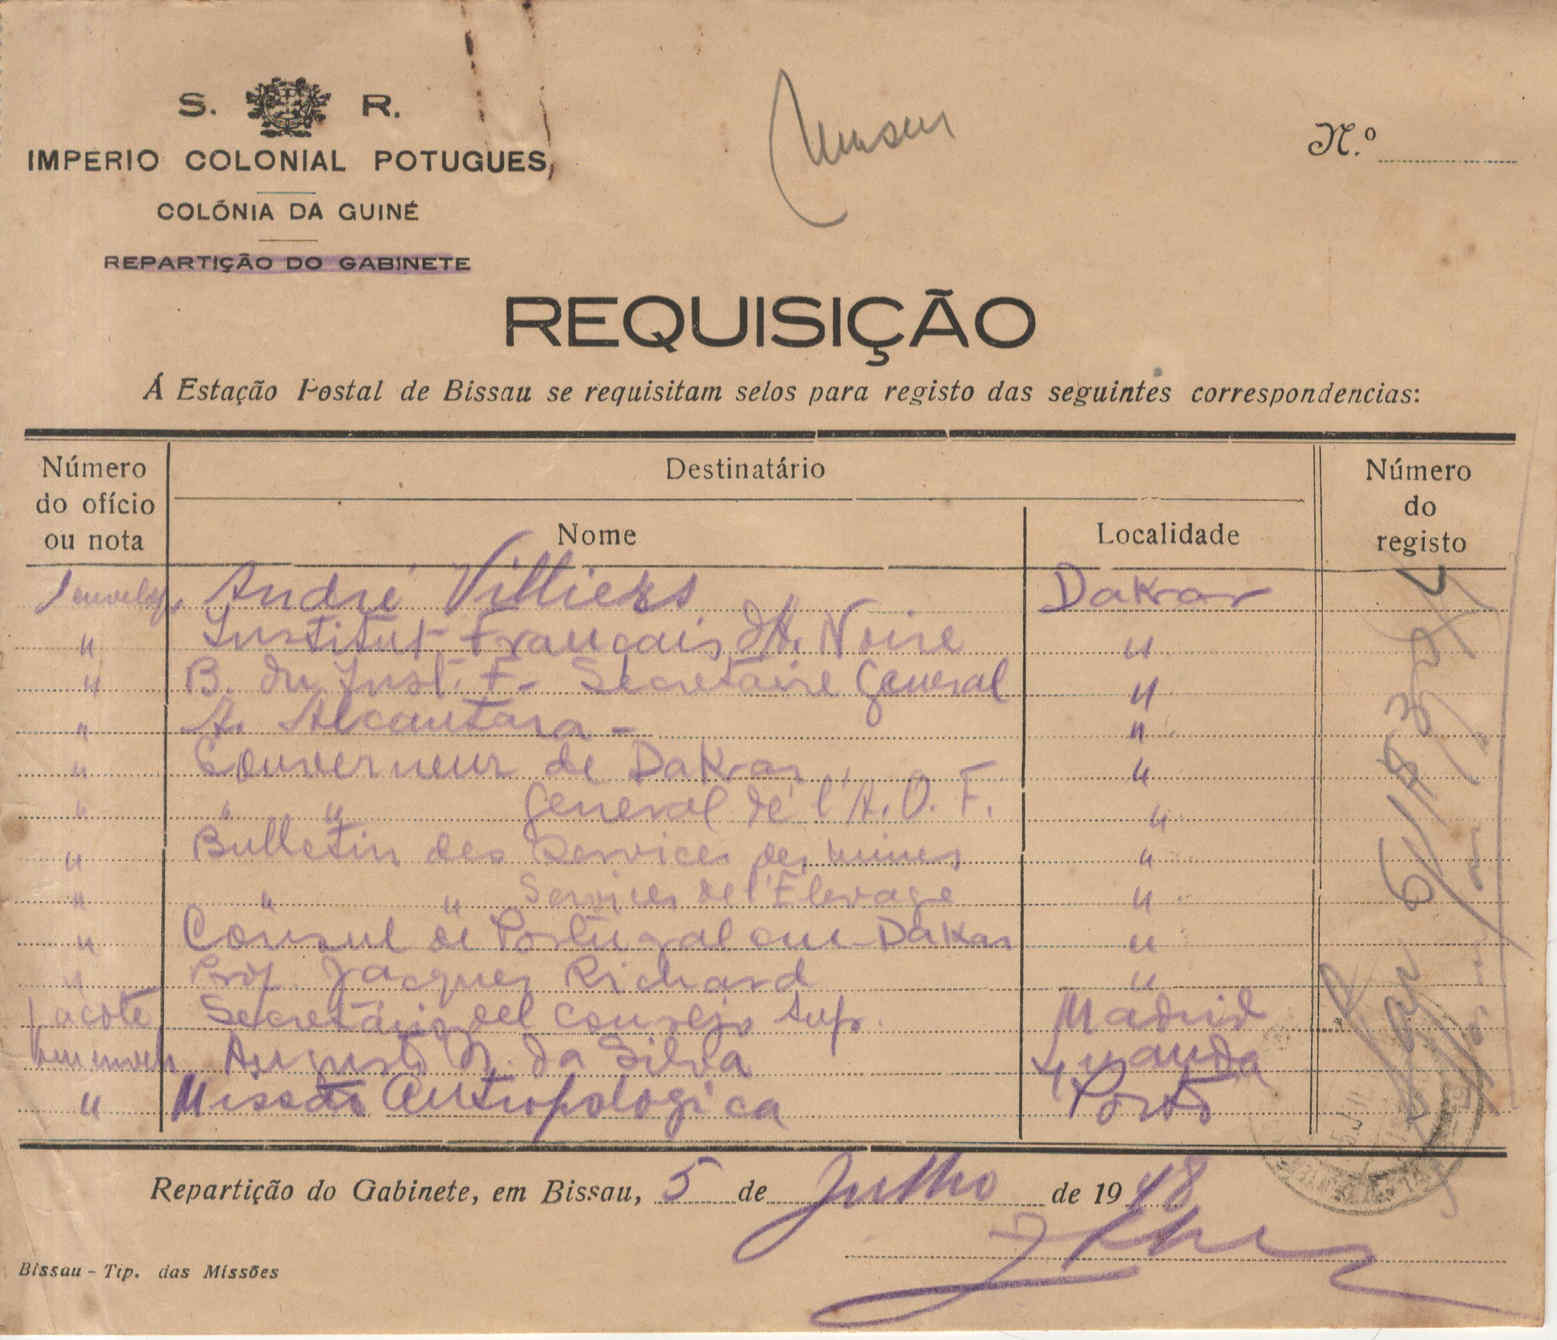 S. R.
IMPERIO COLONIAL POTUGUES,
COLÓNIA DA GUINÉ
REPARTIÇÃO DO GABINETE
N.º
REQUISIÇÃO
Á Estação Postal de Bissau se requisitam selos para registo das seguintes correspondencias:
Número do ofício ou nota
Destinatário
Nome
Localidade
Número do registo
André Villiers Dakar
" Institut Français d'A. Noire "
" B. du Inst. F- Secretaire General "
" A. Alcantara - "
" Gouverneur de Dakar "
" " " General de l'A.O.F. "
" Bulletin des Services des mines "
" " " Services de l'Elevage "
" Consul de Portugal em Dakar "
" Prof. Jacques Richard "
Secretário del Consejo Sup. Madrid
Augusto N. da Silva Luanda
" Missão Antropologica Porto
Repartição do Gabinete, em Bissau, 5 de Julho de 1948
Bissau - Tip. das Missões